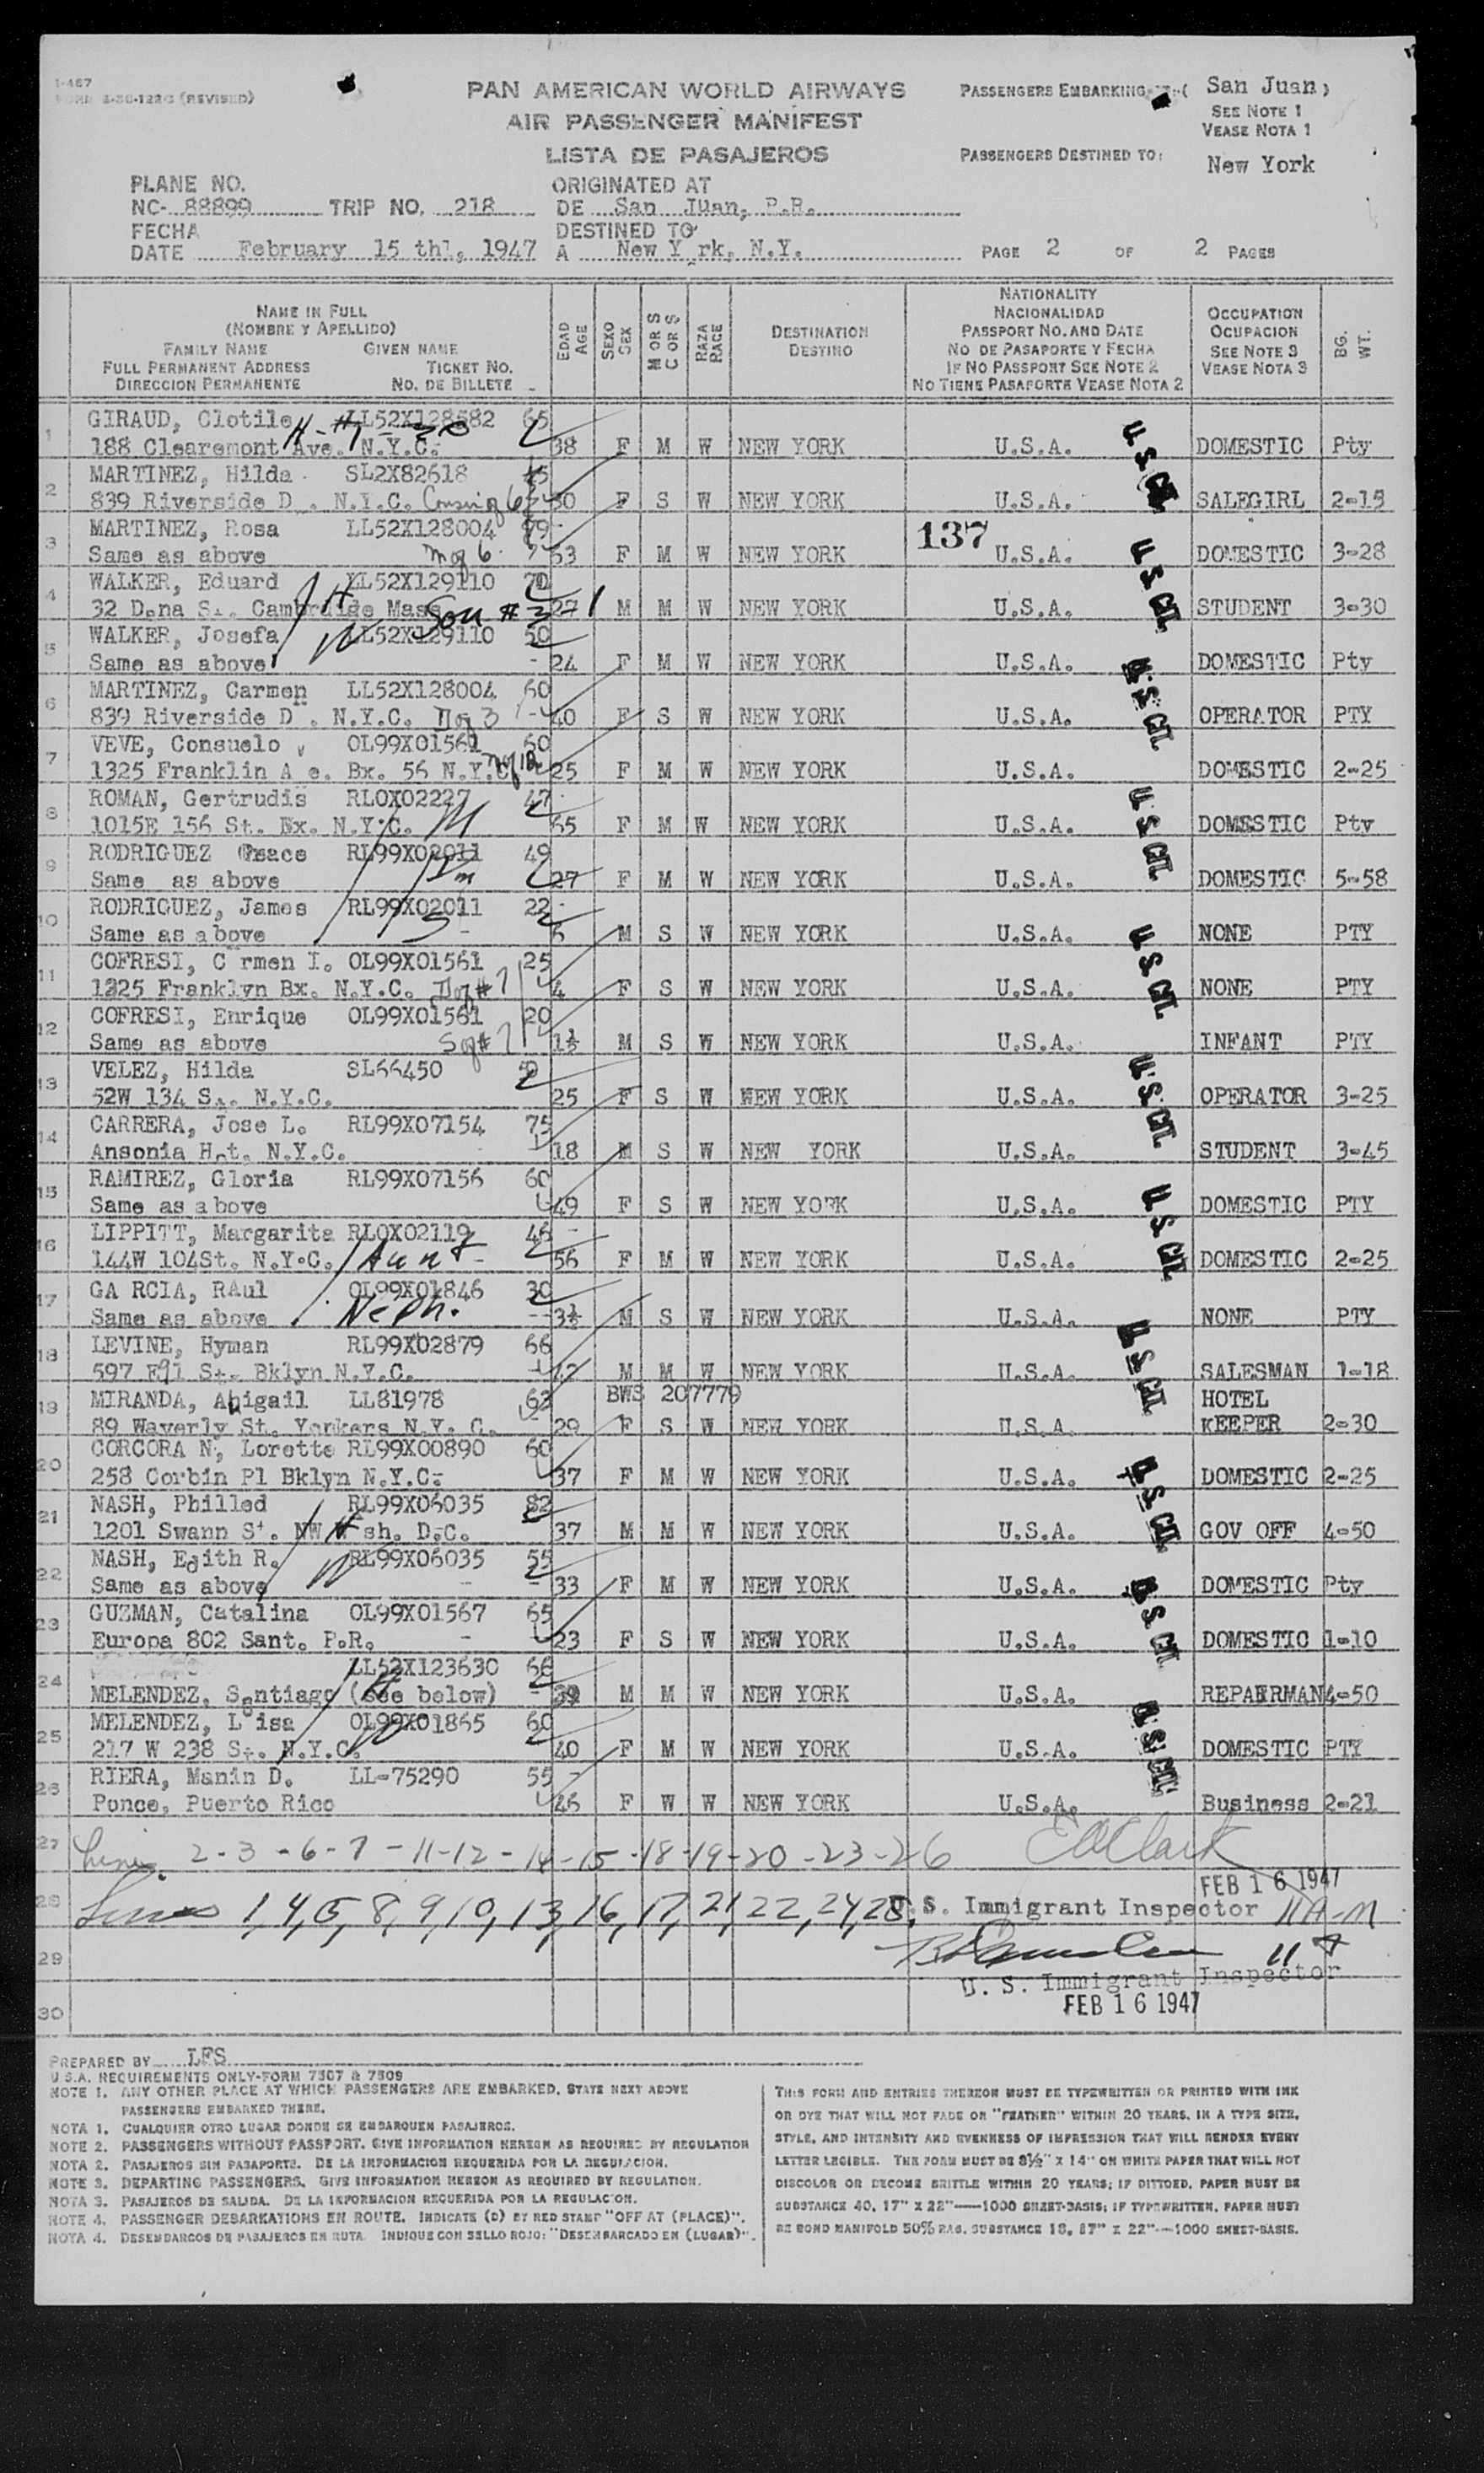 I-467
FORM (REVISED)
PAN AMERICAN WORLD AIRWAYS
AIR PASSENGER MANIFEST
LISTA DE PASAJEROS
PASSENGERS EMBARKING ( San Juan )
SEE NOTE 1
VEASE NOTA 1
PASSENGERS DESTINED TO:
New York
PLANE NO.
NC- 88899 TRIP NO. 218
ORIGINATED AT
DE San Juan, P.R.
FECHA
DATE February 15 th1, 1947
DESTINED TO
A New Y rk, N.Y.
PAGE 2 OF 2 PAGES
NAME IN FULL
(NOMBRE Y APELLIDO)
FAMILY NAME GIVEN NAME
FULL PERMANENT ADDRESS TICKET NO.
DIRECCION PERMANENTE NO. DE BILLETE
EDAD AGE
SEXO SEX
M OR S C OR S
RAZA RACE
DESTINATION
DESTINO
NATIONALITY
NACIONALIDAD
PASSPORT NO. AND DATE
NO DE PASAPORTE Y FECHA
IF NO PASSPORT SEE NOTE 2
NO TIENE PASAPORTE VEASE NOTA 2
OCCUPATION
OCUPACION
SEE NOTE 3
VEASE NOTA 3
BG. WT.
1 GIRAUD, Clotile LL52X128582 65
188 Clearemont Ave. N.Y.C. 38 F M W NEW YORK U.S.A. DOMESTIC Pty
2 MARTINEZ, Hilda SL2X82618
839 Riverside D . N.Y.C. Cousin of 6 30 F S W NEW YORK U.S.A. SALEGIRL 2-15
3 MARTINEZ, Rosa LL52X128004
Same as above M of 6 53 F M W NEW YORK 137 U.S.A. DOMESTIC 3-28
4 WALKER, Eduard LL52X129110 70
32 Dana St. Cambraidge Mass H Son # 3 27 M M W NEW YORK U.S.A. STUDENT 3-30
5 WALKER, Josefa LL52X129110 50
Same as above W 24 F M W NEW YORK U.S.A. DOMESTIC Pty
6 MARTINEZ, Carmen LL52X128004 60
839 Riverside D . N.Y.C. D of 3 40 F S W NEW YORK U.S.A. OPERATOR PTY
7 VEVE, Consuelo OL99X01561 60
1325 Franklin A e. Bx. 56 N.Y.C. 25 F M W NEW YORK U.S.A. DOMESTIC 2-25
8 ROMAN, Gertrudis RLOX02227 47
1015E 156 St. Bx. N.Y.C. M 65 F M W NEW YORK U.S.A. DOMESTIC Pty
9 RODRIGUEZ Grace RL99X02011 49
Same as above 27 F M W NEW YORK U.S.A. DOMESTIC 5-58
10 RODRIGUEZ, James RL99X02011 22
Same as above S 6 M S W NEW YORK U.S.A. NONE PTY
11 COFRESI, C rmen I. OL99X01561 25
1325 Franklyn Bx. N.Y.C. D of # 7 4 F S W NEW YORK U.S.A. NONE PTY
12 COFRESI, Enrique OL99X01561 20
Same as above S of # 7 1½ M S W NEW YORK U.S.A. INFANT PTY
13 VELEZ, Hilda SL66450
52W 134 St. N.Y.C. 25 F S W NEW YORK U.S.A. OPERATOR 3-25
14 CARRERA, Jose L. RL99X07154 75
Ansonia Hot. N.Y.C. 18 M S W NEW YORK U.S.A. STUDENT 3-45
15 RAMIREZ, Gloria RL99X07156 60
Same as above 49 F S W NEW YORK U.S.A. DOMESTIC PTY
16 LIPPITT, Margarita RLOX02119 46
144W 104St. N.Y.C. Aunt 56 F M W NEW YORK U.S.A. DOMESTIC 2-25
17 GA RCIA, RAul OL99X01846 30
Same as above Neph. 3½ M S W NEW YORK U.S.A. NONE PTY
18 LEVINE, Hyman RL99X02879 66
597 E91 St. Bklyn N.Y.C. 42 M M W NEW YORK U.S.A. SALESMAN 1-18
19 MIRANDA, Abigail LL81978 63 BWS 207779 HOTEL
89 Waverly St. Yonkers N.Y. C. 29 F S W NEW YORK U.S.A. KEEPER 2-30
20 CORCORA N, Lorette RL99X00890 60
258 Corbin Pl Bklyn N.Y.C. 37 F M W NEW YORK U.S.A. DOMESTIC 2-25
21 NASH, Philled RL99X06035 82
1201 Swann St. NW W sh. D.C. H 37 M M W NEW YORK U.S.A. GOV OFF 4-50
22 NASH, Edith R. RL99X06035 55
Same as above W 33 F M W NEW YORK U.S.A. DOMESTIC Pty
23 GUZMAN, Catalina OL99X01567 65
Europa 802 Sant. P.R. 23 F S W NEW YORK U.S.A. DOMESTIC 1-10
24 LL52X123630 66
MELENDEZ, Santiago (see below) H 39 M M W NEW YORK U.S.A. REPAERMAN 4-50
25 MELENDEZ, L isa OL99X01865 60
217 W 238 St. N.Y.C. W 40 F M W NEW YORK U.S.A. DOMESTIC PTY
26 RIERA, Manin D. LL-75290 55
Ponce, Puerto Rico 46 F W W NEW YORK U.S.A. Business 2-21
U.S. CIT.
U.S. CIT.
U.S. CIT.
U.S. CIT.
U.S. CIT.
U.S. CIT.
U.S. CIT.
U.S. CIT.
U.S. CIT.
U.S. CIT.
U.S. CIT.
27 Lines 2-3-6-7-11-12-14-15-18-19-20-23-26 Clark
FEB 16 1947
28 Lines 1,4,5,8,9,10,13,16,17,21,22,24,25, U.S. Immigrant Inspector 11 A-M
29
U. S. Immigrant Inspector
30 FEB 16 1947
PREPARED BY LFS
U.S.A. REQUIREMENTS ONLY-FORM 7507 & 7509
NOTE 1. ANY OTHER PLACE AT WHICH PASSENGERS ARE EMBARKED, STATE NEXT ABOVE
PASSENGERS EMBARKED THERE.
NOTA 1. CUALQUIER OTRO LUGAR DONDE SE EMBARQUEN PASAJEROS.
NOTE 2. PASSENGERS WITHOUT PASSPORT. GIVE INFORMATION HEREON AS REQUIRED BY REGULATION
NOTA 2. PASAJEROS SIN PASAPORTE. DE LA INFORMACION REQUERIDA POR LA REGULACION.
NOTE 3. DEPARTING PASSENGERS. GIVE INFORMATION HEREON AS REQUIRED BY REGULATION.
NOTA 3. PASAJEROS DE SALIDA. DE LA INFORMACION REQUERIDA POR LA REGULACION.
NOTE 4. PASSENGER DEBARKATIONS EN ROUTE. INDICATE (D) BY RED STAMP "OFF AT (PLACE)".
NOTA 4. DESEMBARCOS DE PASAJEROS EN RUTA. INDIQUE CON SELLO ROJO: "DESEMBARCADO EN (LUGAR)".
THIS FORM AND ENTRIES THEREON MUST BE TYPEWRITTEN OR PRINTED WITH INK
OR DYE THAT WILL NOT FADE OR "FEATHER" WITHIN 20 YEARS, IN A TYPE SIZE,
STYLE, AND INTENSITY AND EVENNESS OF IMPRESSION THAT WILL RENDER EVERY
LETTER LEGIBLE. THE FORM MUST BE 8½" X 14" ON WHITE PAPER THAT WILL NOT
DISCOLOR OR BECOME BRITTLE WITHIN 20 YEARS; IF DITTOED, PAPER MUST BE
SUBSTANCE 40, 17" X 22"—1000 SHEET-BASIS; IF TYPEWRITTEN, PAPER MUST
BE BOND MANIFOLD 50% RAG, SUBSTANCE 18, 17" X 22"—1000 SHEET-BASIS.